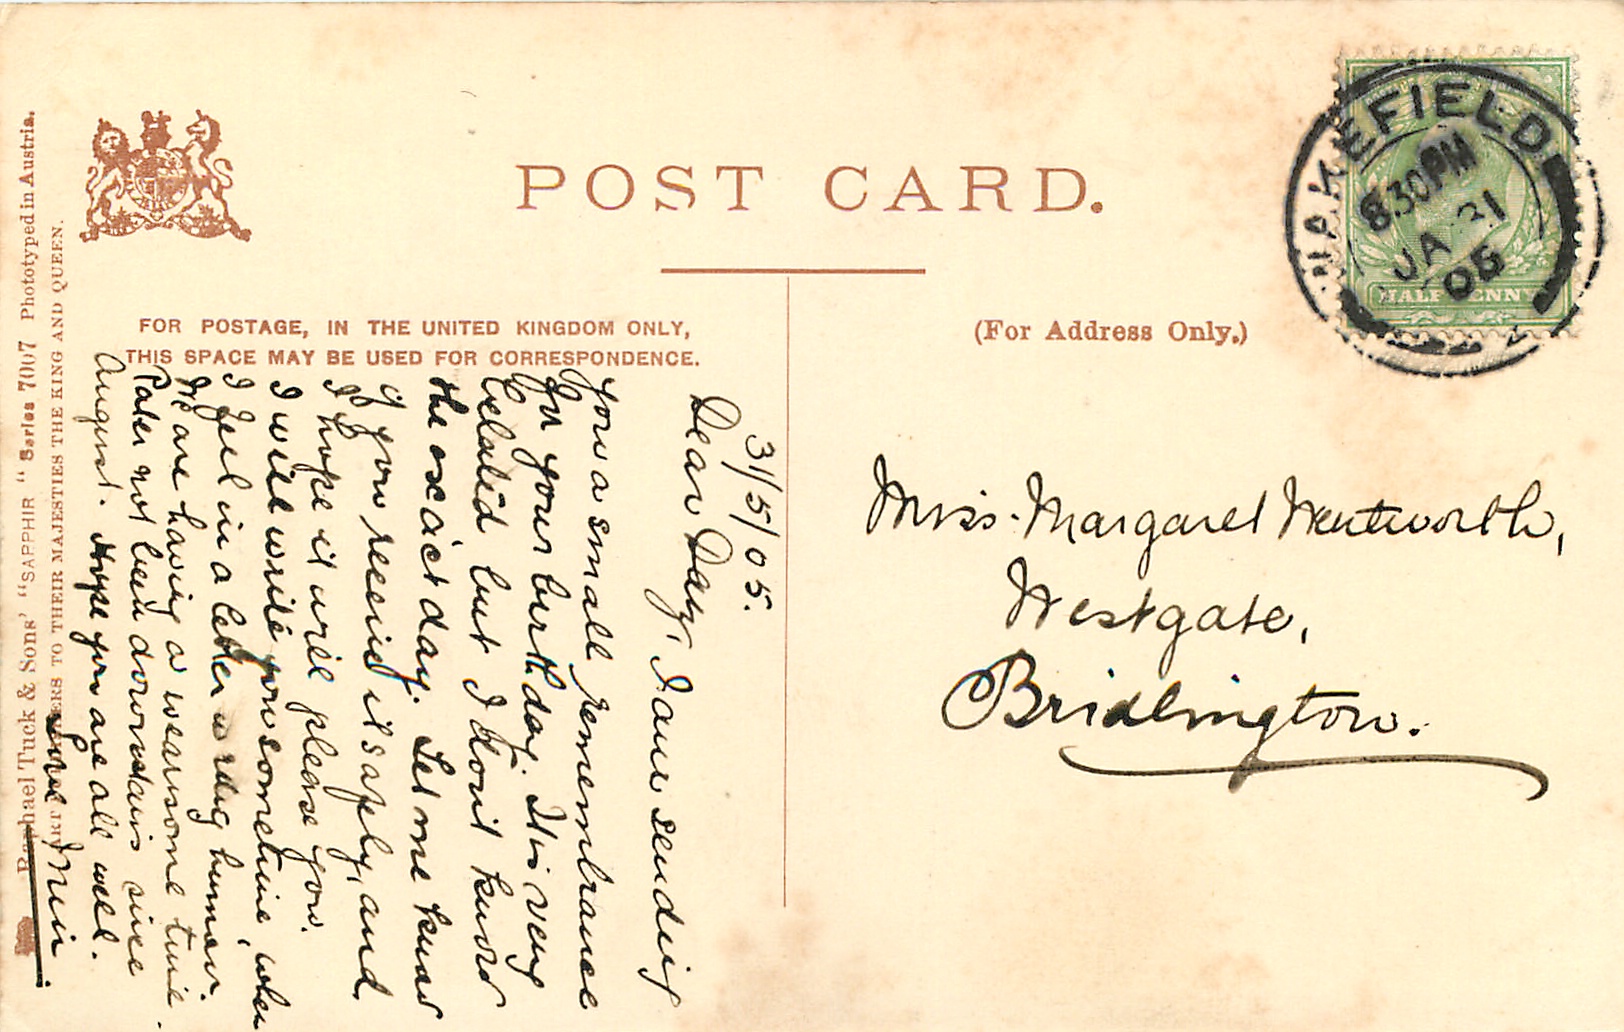 POST CARD.
FOR POSTAGE, IN THE UNITED KINGDOM ONLY,
THIS SPACE MAY BE USED FOR CORRESPONDENCE.
(For Address Only.)
WAKEFIELD
8.30PM
JA 31
05
HALFPENNY
Miss. Margaret Wentworth,
Westgate,
Bridlington.
31/5/05.
Dear Day, I am sending
you a small remembrance
for your birthday. It is very
belated but I don't know
the exact day. Let me know
if you receive it safely, and
I hope it will please you.
I will write you sometime, when
I feel in a letter writing humour.
We are having a wearisome time.
Pater not been downstairs since
August. Hope you are all well.
Love Min
Raphael Tuck & Sons' "SAPPHIR" Series 7007 Phototyped in Austria.
ART TO THEIR MAJESTIES THE KING AND QUEEN.